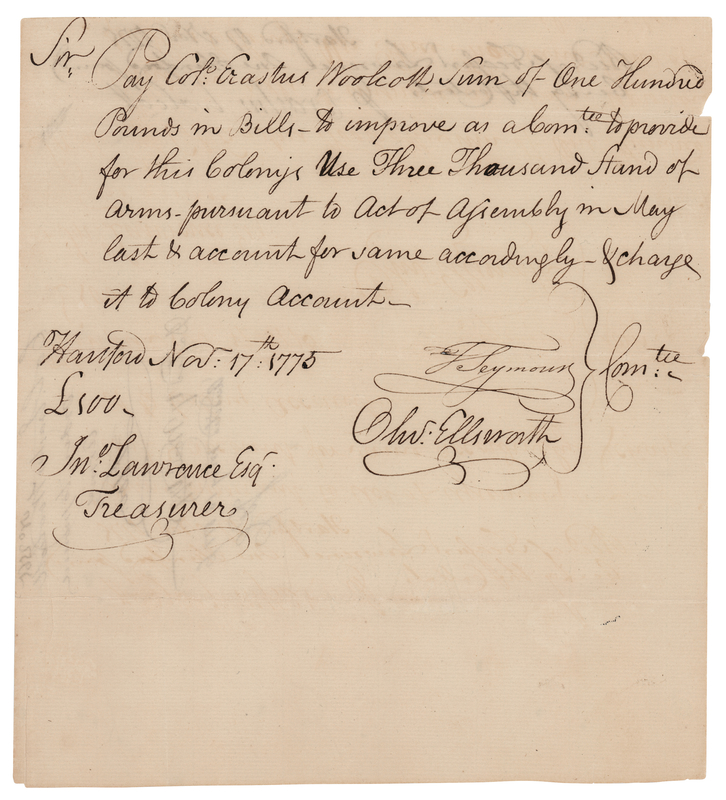 Sir,
Pay Colo. Erastus Woolcott, Sum of One Hundred
Pounds in Bills - to improve as a Com:tee to provide
for this Colonys Use Three Thousand Stand of
Arms - pursuant to Act of Assembly in May
last & account for same accordingly - & charge
it to Colony Account -
Hartford Nov: 17th: 1775
£100 -
T Seymour
Olivr: Ellsworth
Com:tee
Jno. Lawrence Esqr.
Treasurer